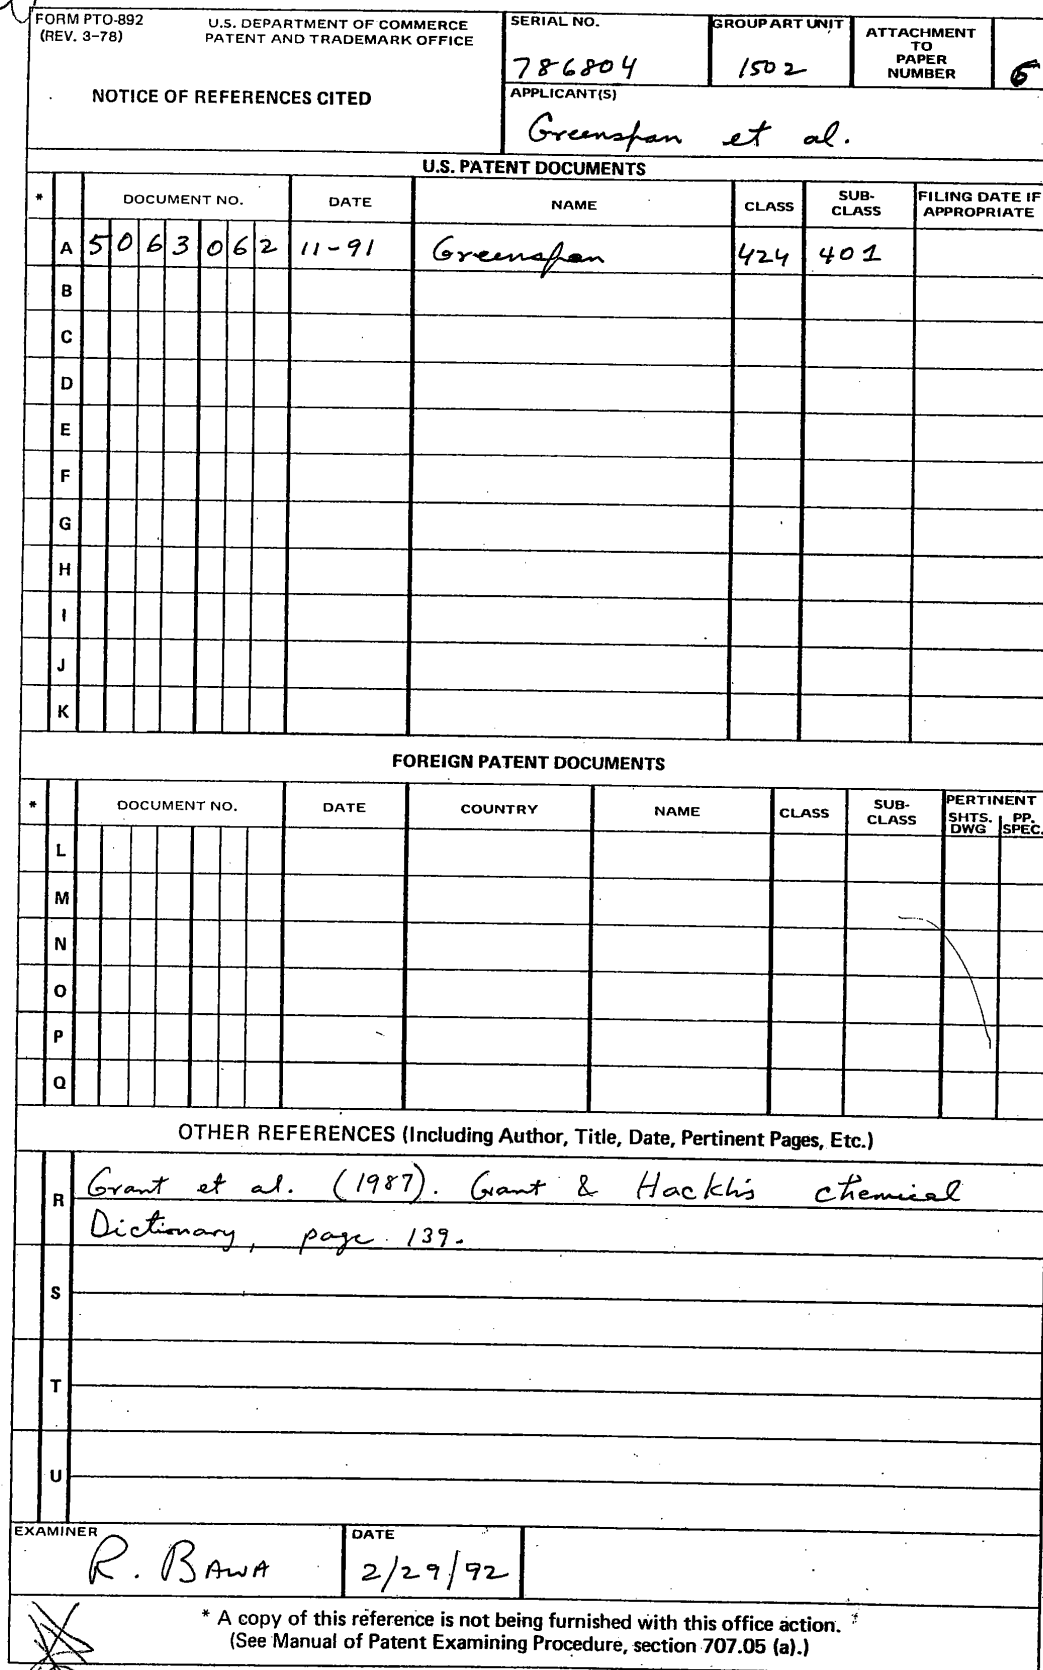 FORM PTO-892
(REV. 3-78)
U.S. DEPARTMENT OF COMMERCE
PATENT AND TRADEMARK OFFICE
NOTICE OF REFERENCES CITED
SERIAL NO.
786804
GROUP ART UNIT
1502
ATTACHMENT
TO
PAPER
NUMBER
6
APPLICANT(S)
Greenspan et al.
U.S. PATENT DOCUMENTS
* DOCUMENT NO. DATE NAME CLASS SUB-CLASS FILING DATE IF APPROPRIATE
A 5063062 11-91 Greenspan 424 401
B
C
D
E
F
G
H
I
J
K
FOREIGN PATENT DOCUMENTS
* DOCUMENT NO. DATE COUNTRY NAME CLASS SUB-CLASS PERTINENT SHTS. DWG PP. SPEC.
L
M
N
O
P
Q
OTHER REFERENCES (Including Author, Title, Date, Pertinent Pages, Etc.)
R Grant et al. (1987). Grant & Hackh's chemical
Dictionary, page 139.
S
T
U
EXAMINER
R. BAWA
DATE
2/29/92
* A copy of this reference is not being furnished with this office action.
(See Manual of Patent Examining Procedure, section 707.05 (a).)